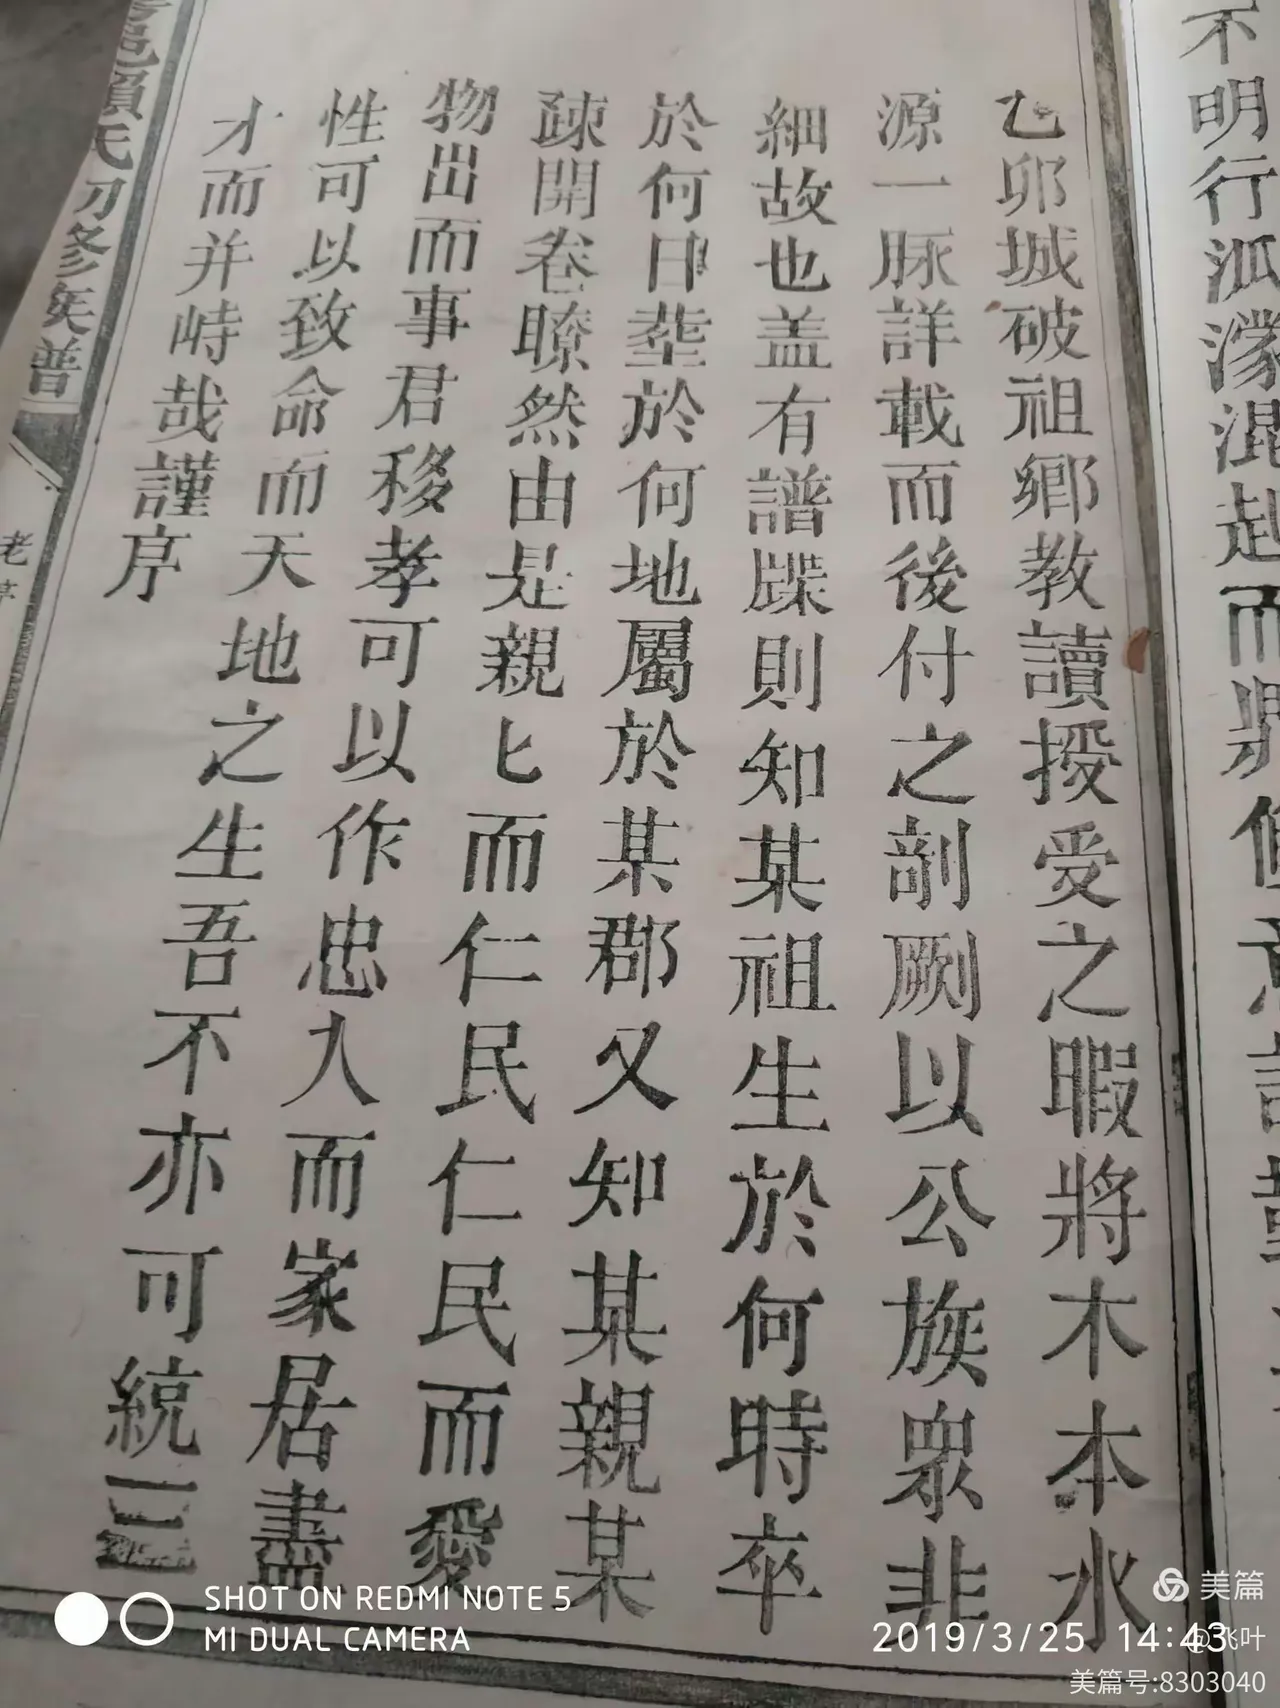 不明行派濛混起而
乙卯城破祖鄉教讀授受之暇將木本水
源一脉詳載而後付之剖劂以公族衆非
細故也盖有譜牒則知某祖生於何時卒
於何日塟於何地屬於某郡又知某親某
疎開卷瞭然由是親匕而仁民仁民而愛
物出而事君移孝可以作忠入而家居盡
性可以致命而天地之生吾不亦可統三
才而并峙哉謹序
邑賴氏初修族普
老序
SHOT ON REDMI NOTE 5
MI DUAL CAMERA
美篇
2019/3/25 14:43
@飞叶
美篇号:8303040